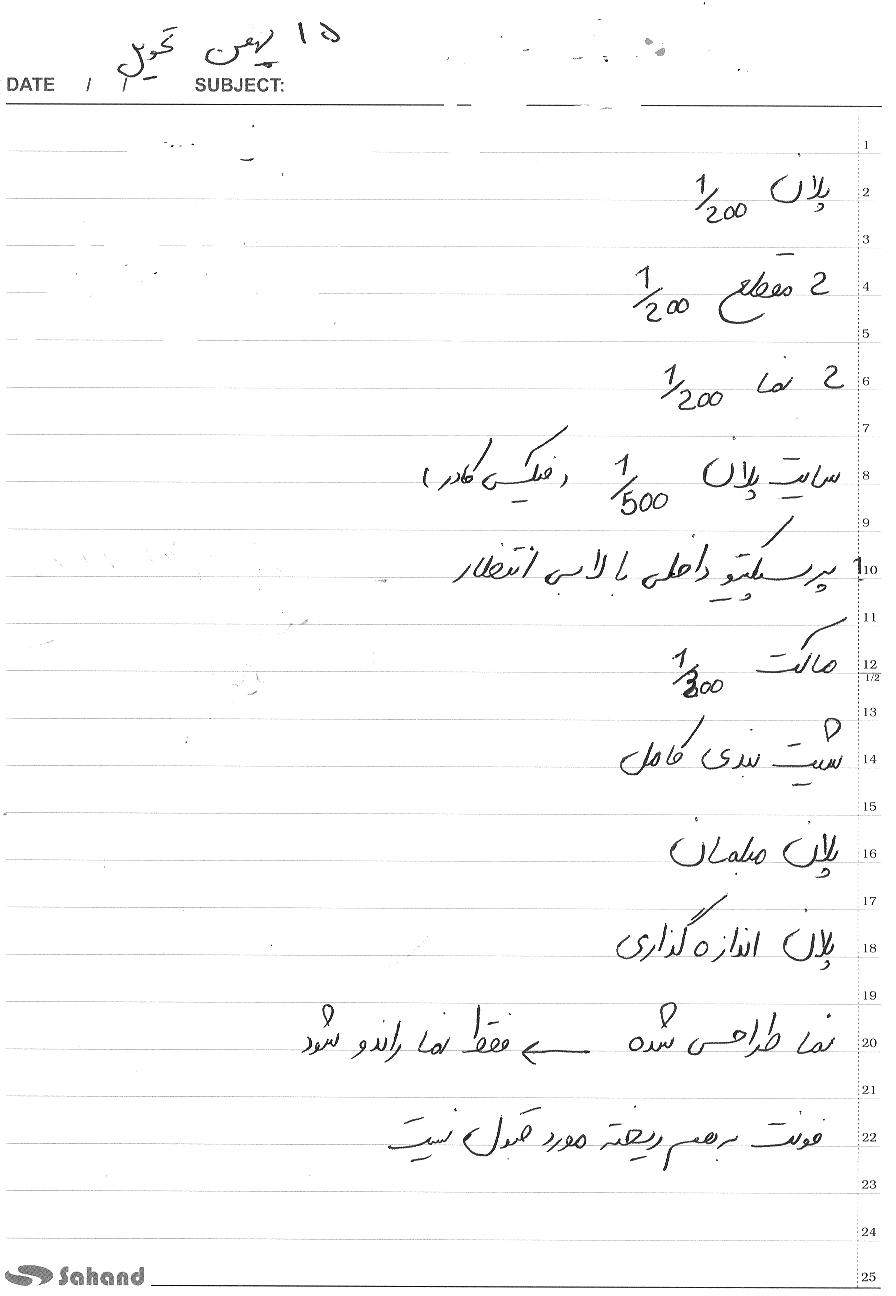 ۱۵ بهمن تحویل
DATE / / SUBJECT:
1
پلان 1/200 2
3
2 مقطع 1/200 4
5
2 نما 1/200 6
7
سایت پلان 1/500 (فیکس کادر) 8
9
1 پرسپکتیو داخلی یا لابی انتظار 10
11
ماکت 1/300 12
1/2
13
شیت بندی کامل 14
15
پلان مبلمان 16
17
پلان اندازه گذاری 18
19
نما طراحی شده ← فقط نما راندو شود 20
21
فونت بهم ریخته مورد قبول نیست 22
23
24
Sahand 25